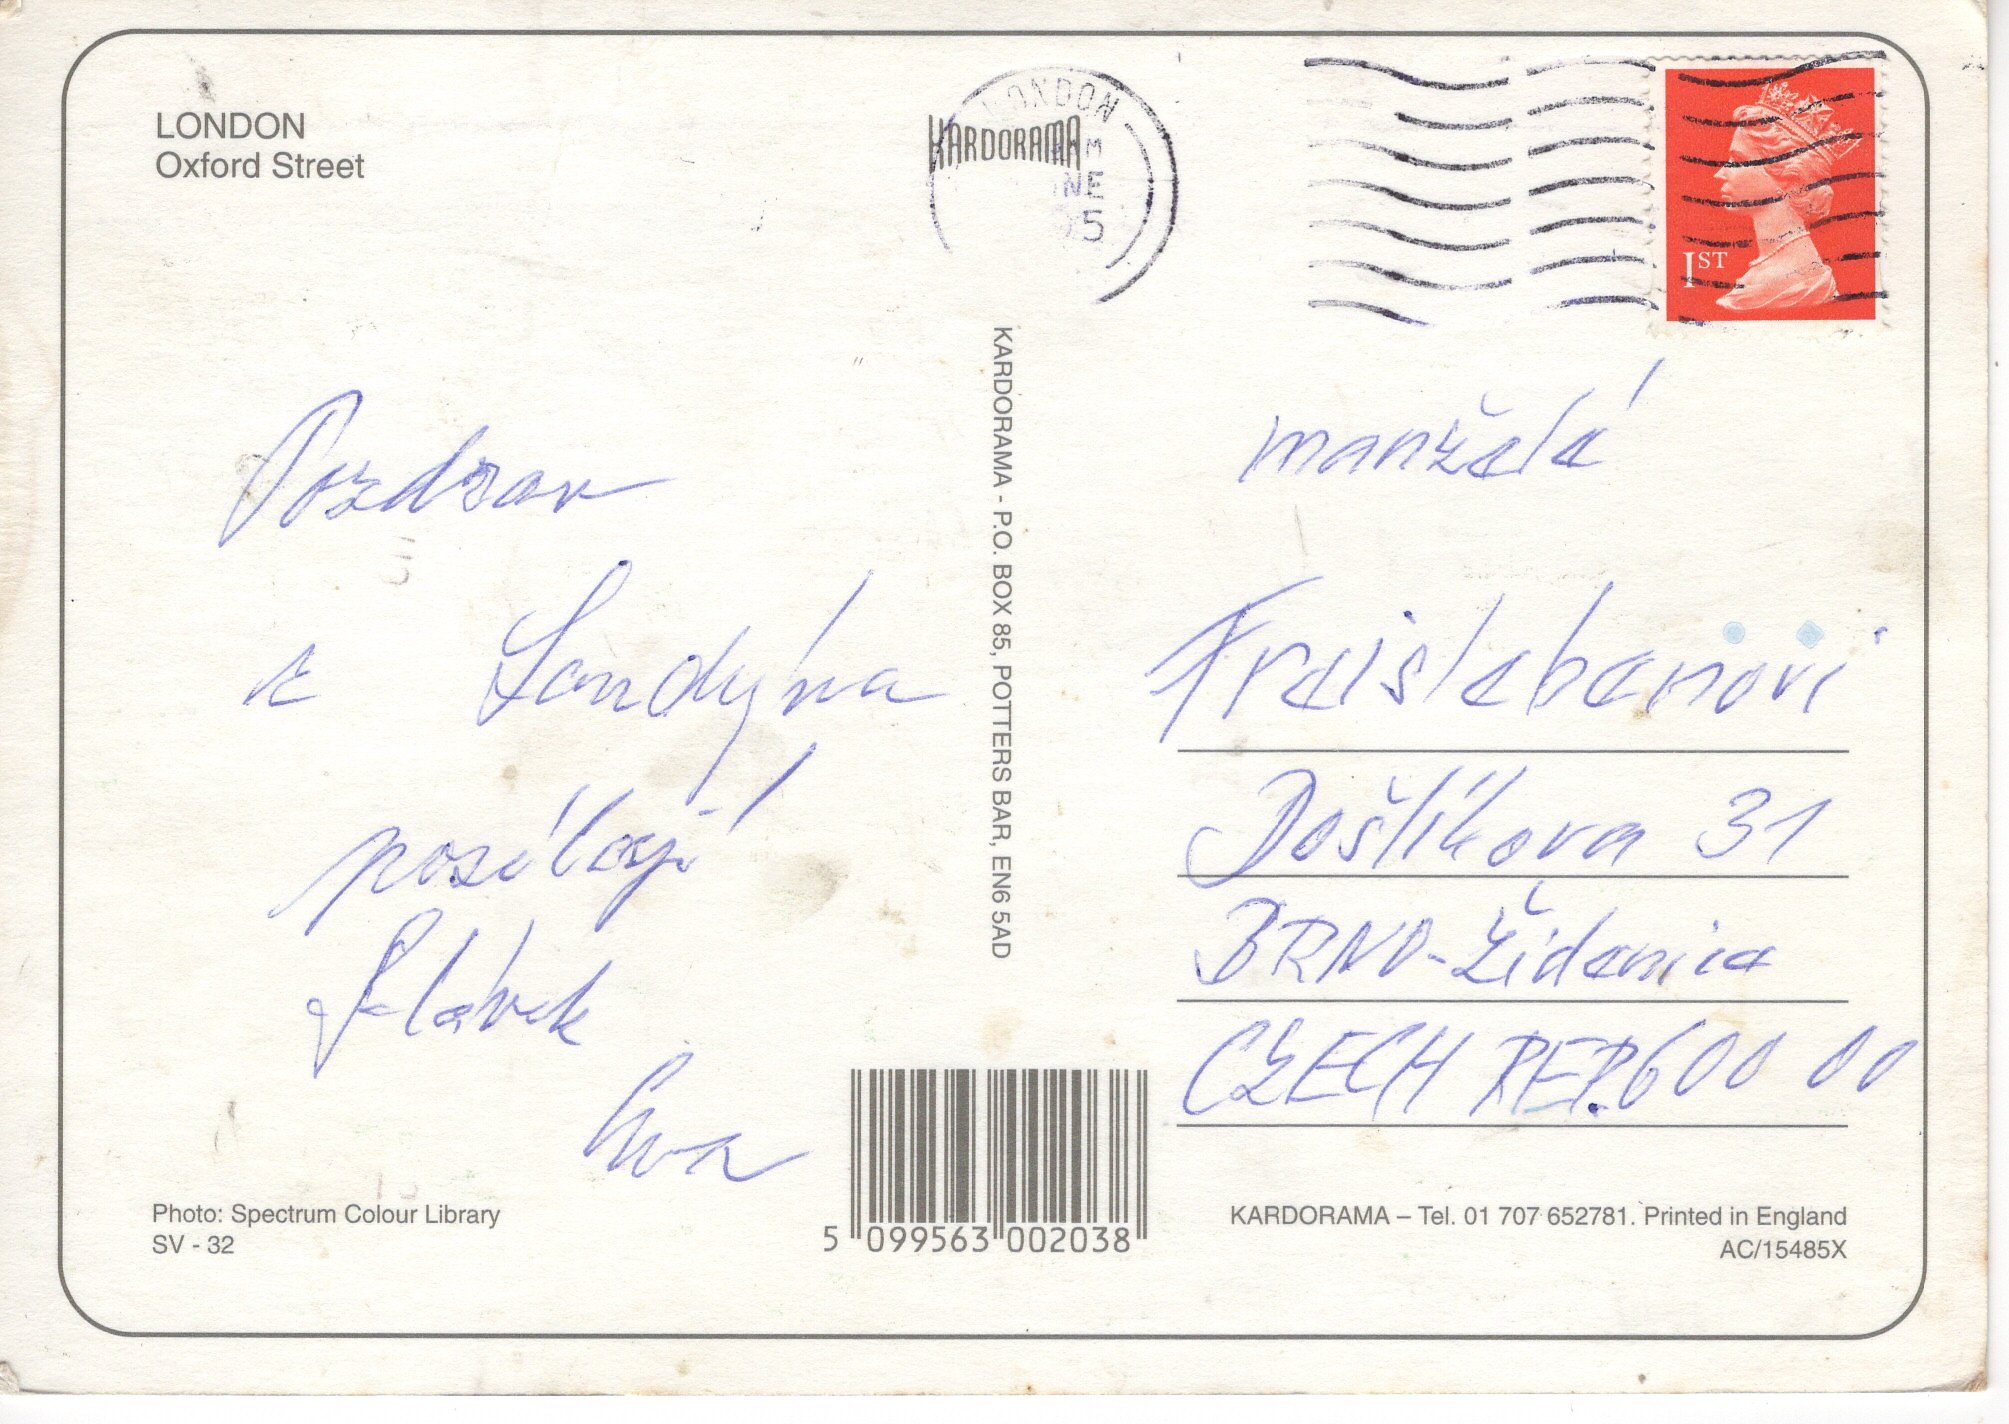 LONDON
Oxford Street
KARDORAMA
LONDON
NE
95
1ST
Pozdrav
z Londýna
posílají
Slávek
Eva
KARDORAMA - P.O. BOX 85, POTTERS BAR, EN6 5AD
manželé
Freislebenovi
Došlíkova 31
BRNO-Židenice
CZECH REP. 600 00
Photo: Spectrum Colour Library
SV - 32
5 099563 002038
KARDORAMA – Tel. 01 707 652781. Printed in England
AC/15485X